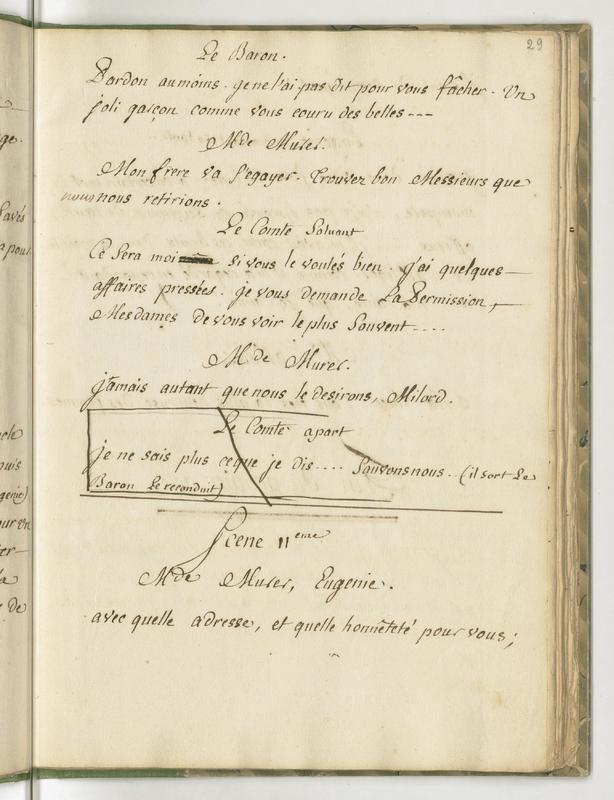 29
Le Baron.
Pardon au moins. je ne l'ai pas dit pour vous fâcher. Un
joli garçon comme vous couru des belles ---
Mde Murer.
Mon frere va s'egayer. Trouvez bon Messieurs que
nous nous retirions.
Le Comte Saluant
Ce sera moi si vous le voulés bien. j'ai quelques
affaires pressées. je vous demande La Permission,
Mesdames de vous voir le plus Souvent....
Mde Murer.
jamais autant que nous le desirons, Milord.
Le Comte apart
je ne sais plus ceque je dis.... Sauvons nous.. (il sort Le
Baron Le reconduit)
Scene 11eme
Mde Murer, Eugenie.
avec quelle adresse, et quelle honnêteté pour vous;
ge.
savés
a pour
cle
puis
genie)
our un
er
la
de